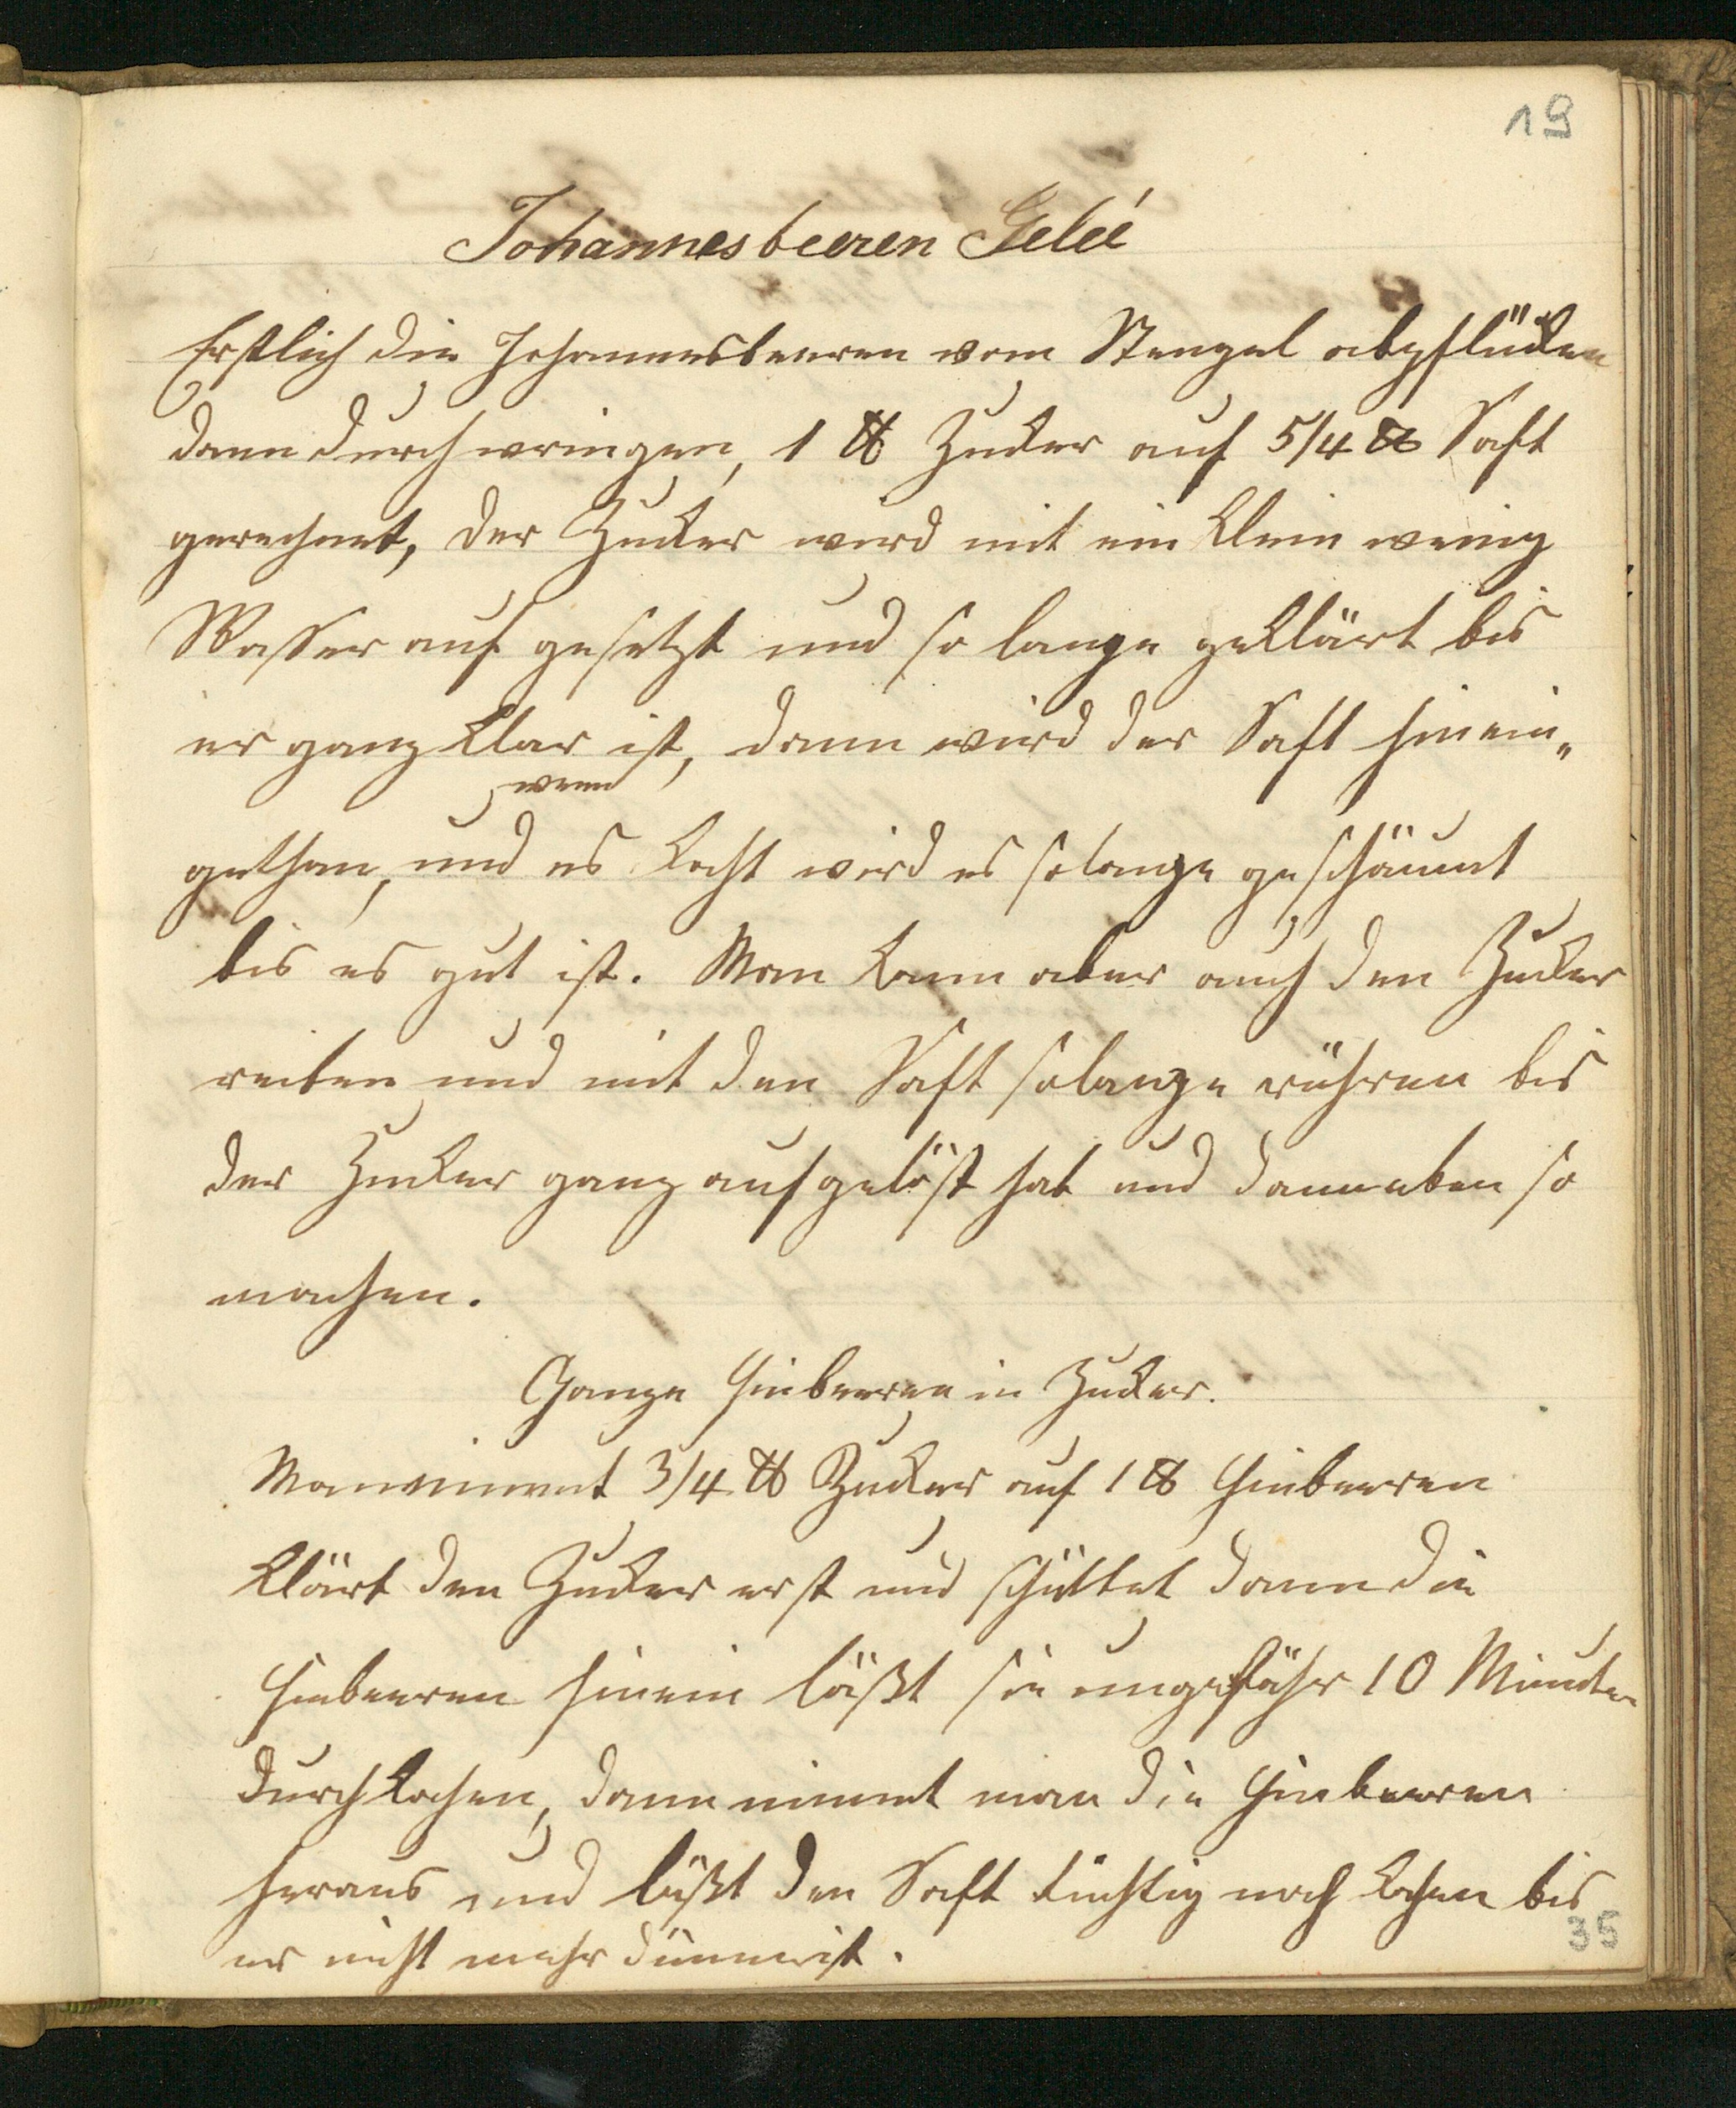 19
Johannesbeeren Geleé
Erstlich die Johannesbeeren vom Stengel abpflücken
dann durch wringen, 1 ℔ Zucker auf 5/4 ℔ Saft
gerechnet, der Zucker wird mit ein klein wenig
Wasser auf gesetzt und so lange geklärt bis
er ganz klar ist, dann wird der Saft hinein„
wenn
gethan, und es kocht wird es solange geschäumt
bis es gut ist. Man kann aber auch den Zucker
reiben und mit den Saft solange rühren bis
der Zucker ganz aufgelöst hat und dann eben so
machen.
Ganze Himbeeren in Zucker.
Man nimmt 3/4 ℔ Zucker auf 1 ℔ Himbeeren
klärt den Zucker erst und schüttet dann die
Himbeeren hinein läßt sie ungefähr 10 Minuten
durchkochen, dann nimmt man die Himbeeren
heraus und läßt den Saft tüchtig nach kochen bis
er nicht mehr dünne ist.
35